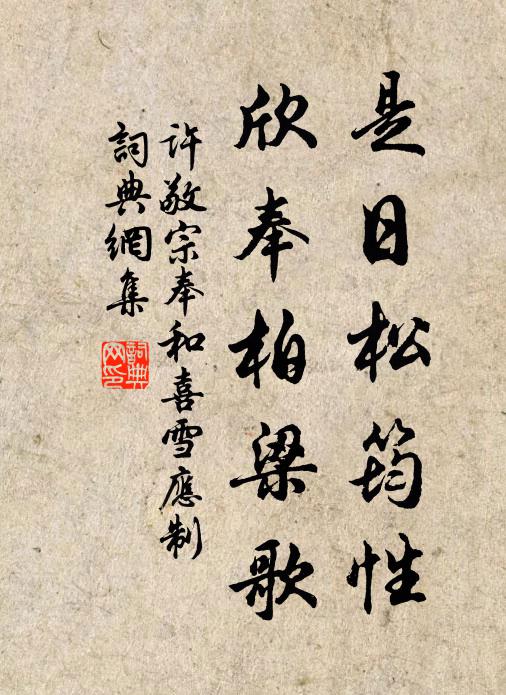 是日松筠性
欣奉柏梁歌
许敬宗奉和喜雪應制
詞典網集
詞典网印